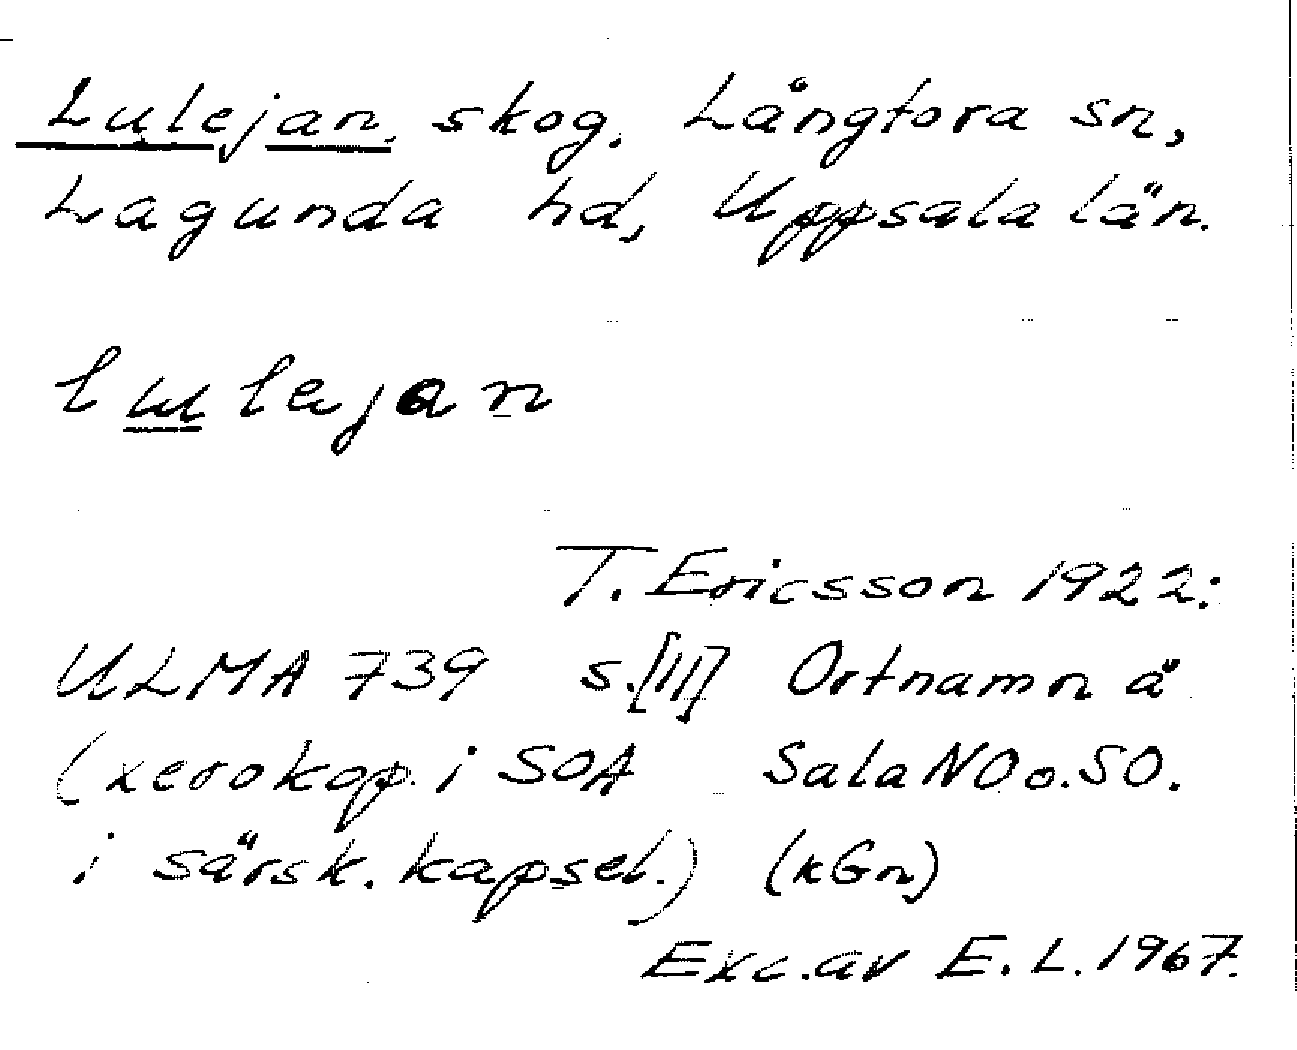 Lulejan. skog. Långtora sn,
Lagunda hd, Uppsala län.
lulejan
T. Ericsson 1922:
ULMA 739 s.[11] Ortnamn å
(xerokop. i SOA SalaNO o. SO.
i särsk. kapsel.) (kGn)
Exc. av E. L. 1967.